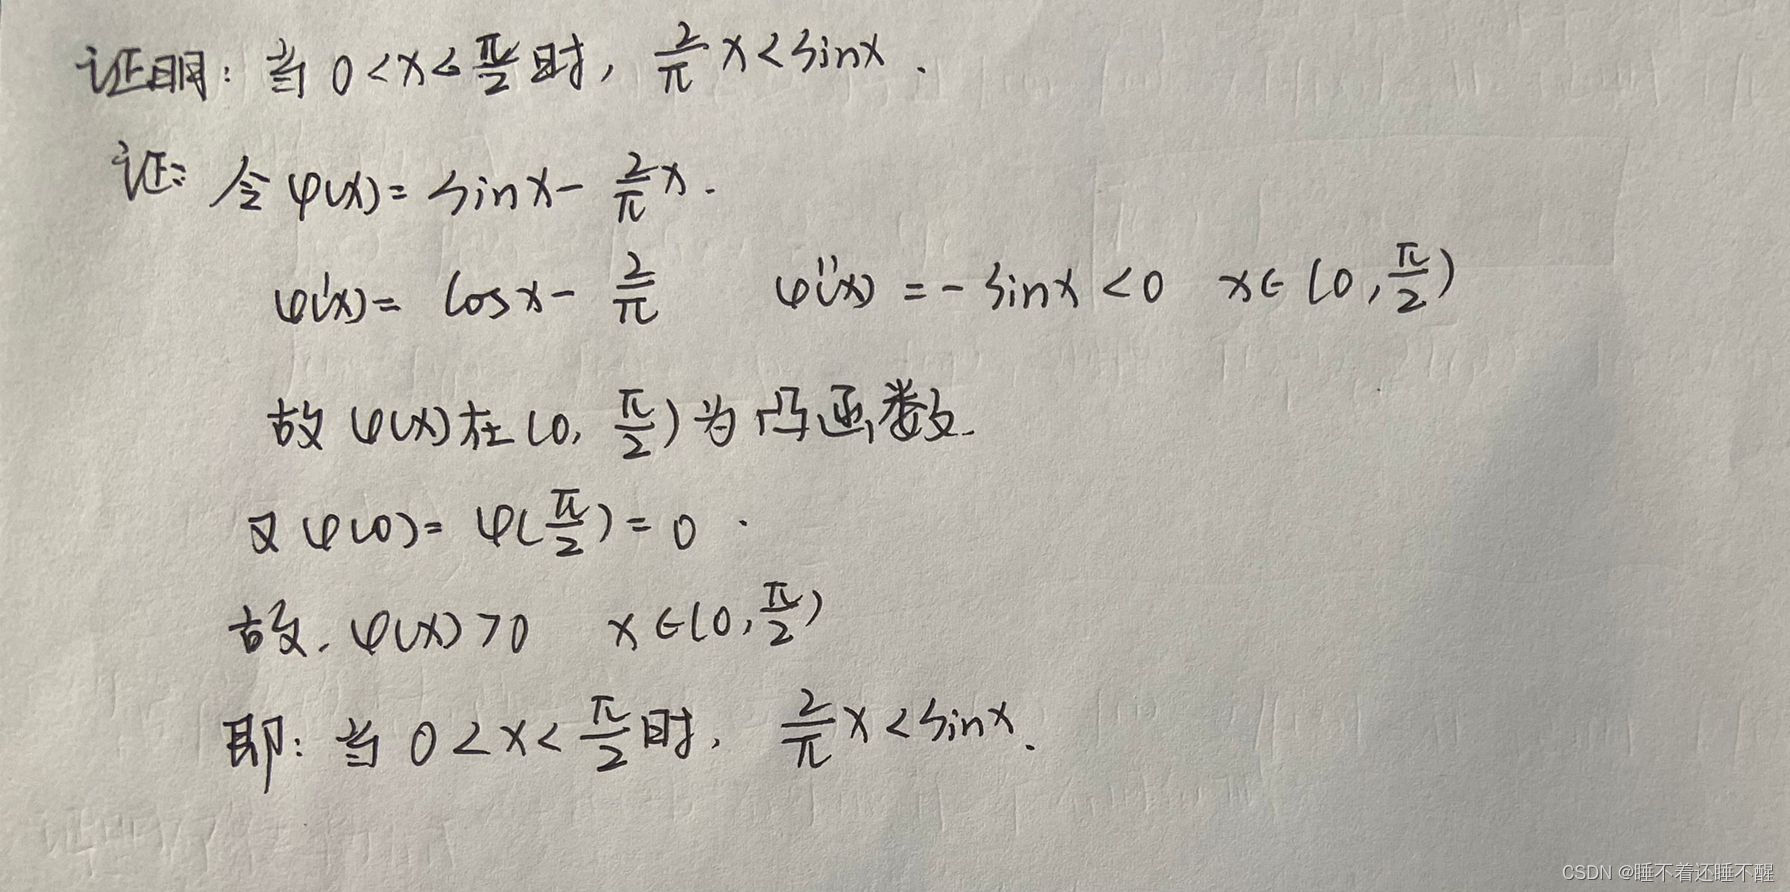 证明：当 0<x<π/2 时，2/π x<sinx .
证： 令 φ(x)= sinx - 2/π x .
φ'(x)= cosx - 2/π φ''(x) = - sinx <0 x∈(0, π/2)
故 φ(x)在(0, π/2)为凸函数.
又 φ(0)= φ(π/2)=0 .
故. φ(x)>0 x∈(0, π/2)
即：当 0<x<π/2 时， 2/π x<sinx.
CSDN @睡不着还睡不醒